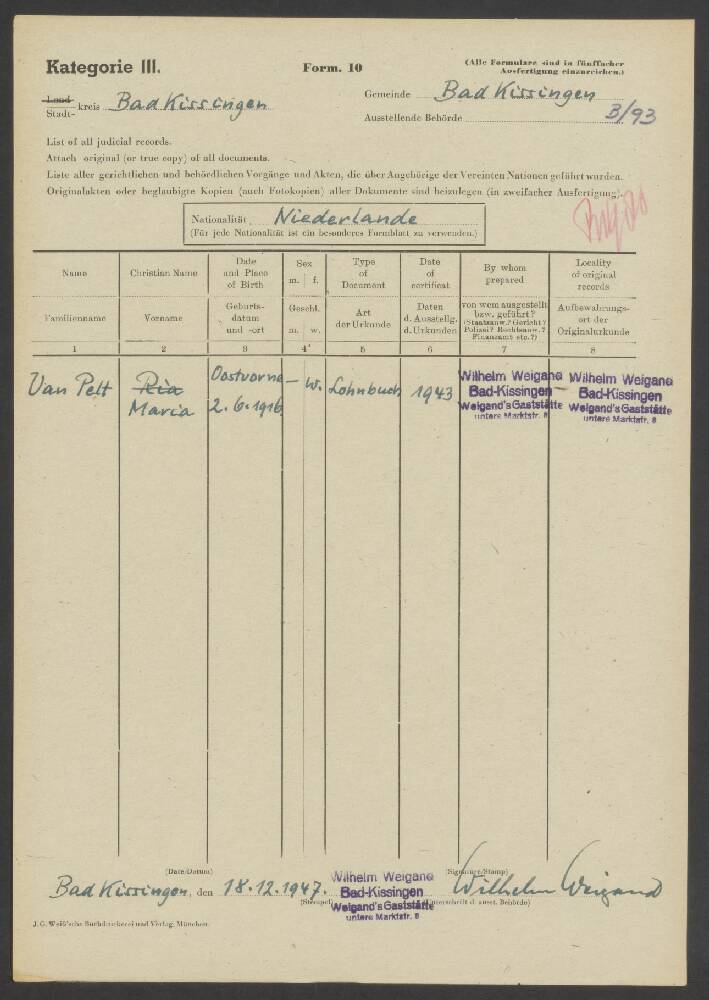 Kategorie III.
Form. 10
(Alle Formulare sind in fünffacher
Ausfertigung einzureichen.)
Land-
Stadt- kreis Bad Kissingen
Gemeinde Bad Kissingen
Ausstellende Behörde B/93
List of all judicial records.
Attach original (or true copy) of all documents.
Liste aller gerichtlichen und behördlichen Vorgänge und Akten, die über Angehörige der Vereinten Nationen geführt wurden.
Originalakten oder beglaubigte Kopien (auch Fotokopien) aller Dokumente sind beizulegen (in zweifacher Ausfertigung).
Nationalität Niederlande
(Für jede Nationalität ist ein besonderes Formblatt zu verwenden.)
Name
Christian Name
Date
and Place
of Birth
Sex
m. f.
Type
of
Document
Date
of
certificat
By whom
prepared
Locality
of original
records
Familienname
Vorname
Geburts-
datum
und -ort
Geschl.
m. w.
Art
der Urkunde
Daten
d. Ausstellg.
d. Urkunden
von wem ausgestellt
bzw. geführt?
(Staatsanw.? Gericht?
Polizei? Rechtsanw.?
Finanzamt etc.?)
Aufbewahrungs-
ort der
Originalurkunde
1 2 3 4 5 6 7 8
Van Pelt
Ria
Maria
Oostvorne
2.6.1916
– w.
Lohnbuch
1943
Wilhelm Weigand
Bad-Kissingen
Weigand's Gaststätte
untere Marktstr. 8
Wilhelm Weigand
Bad-Kissingen
Weigand's Gaststätte
untere Marktstr. 8
(Date/Datum)
Bad Kissingen, den 18.12.1947.
(Stempel)
Wilhelm Weigand
Bad-Kissingen
Weigand's Gaststätte
untere Marktstr. 8
(Signature/Stamp)
Wilhelm Weigand
(Unterschrift d. ausst. Behörde)
J. G. Weiß'sche Buchdruckerei und Verlag, München